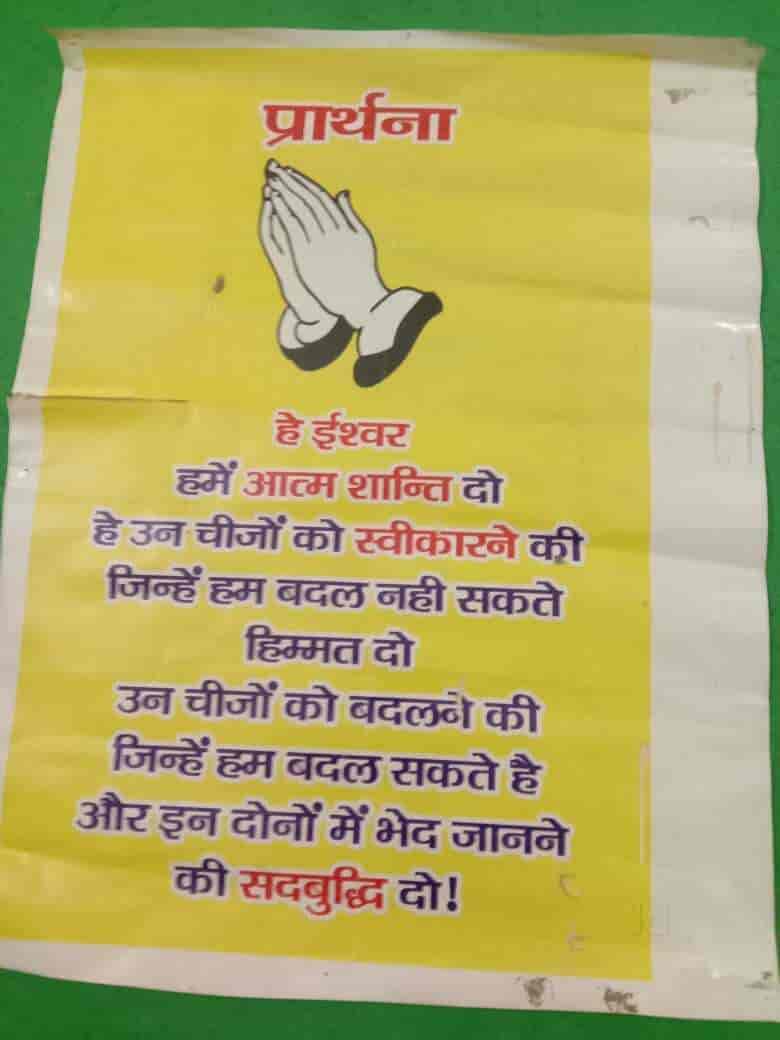 प्रार्थना
हे ईश्वर
हमें आत्म शान्ति दो
हे उन चीजों को स्वीकारने की
जिन्हें हम बदल नही सकते
हिम्मत दो
उन चीजों को बदलने की
जिन्हें हम बदल सकते है
और इन दोनों में भेद जानने
की सदबुद्धि दो!